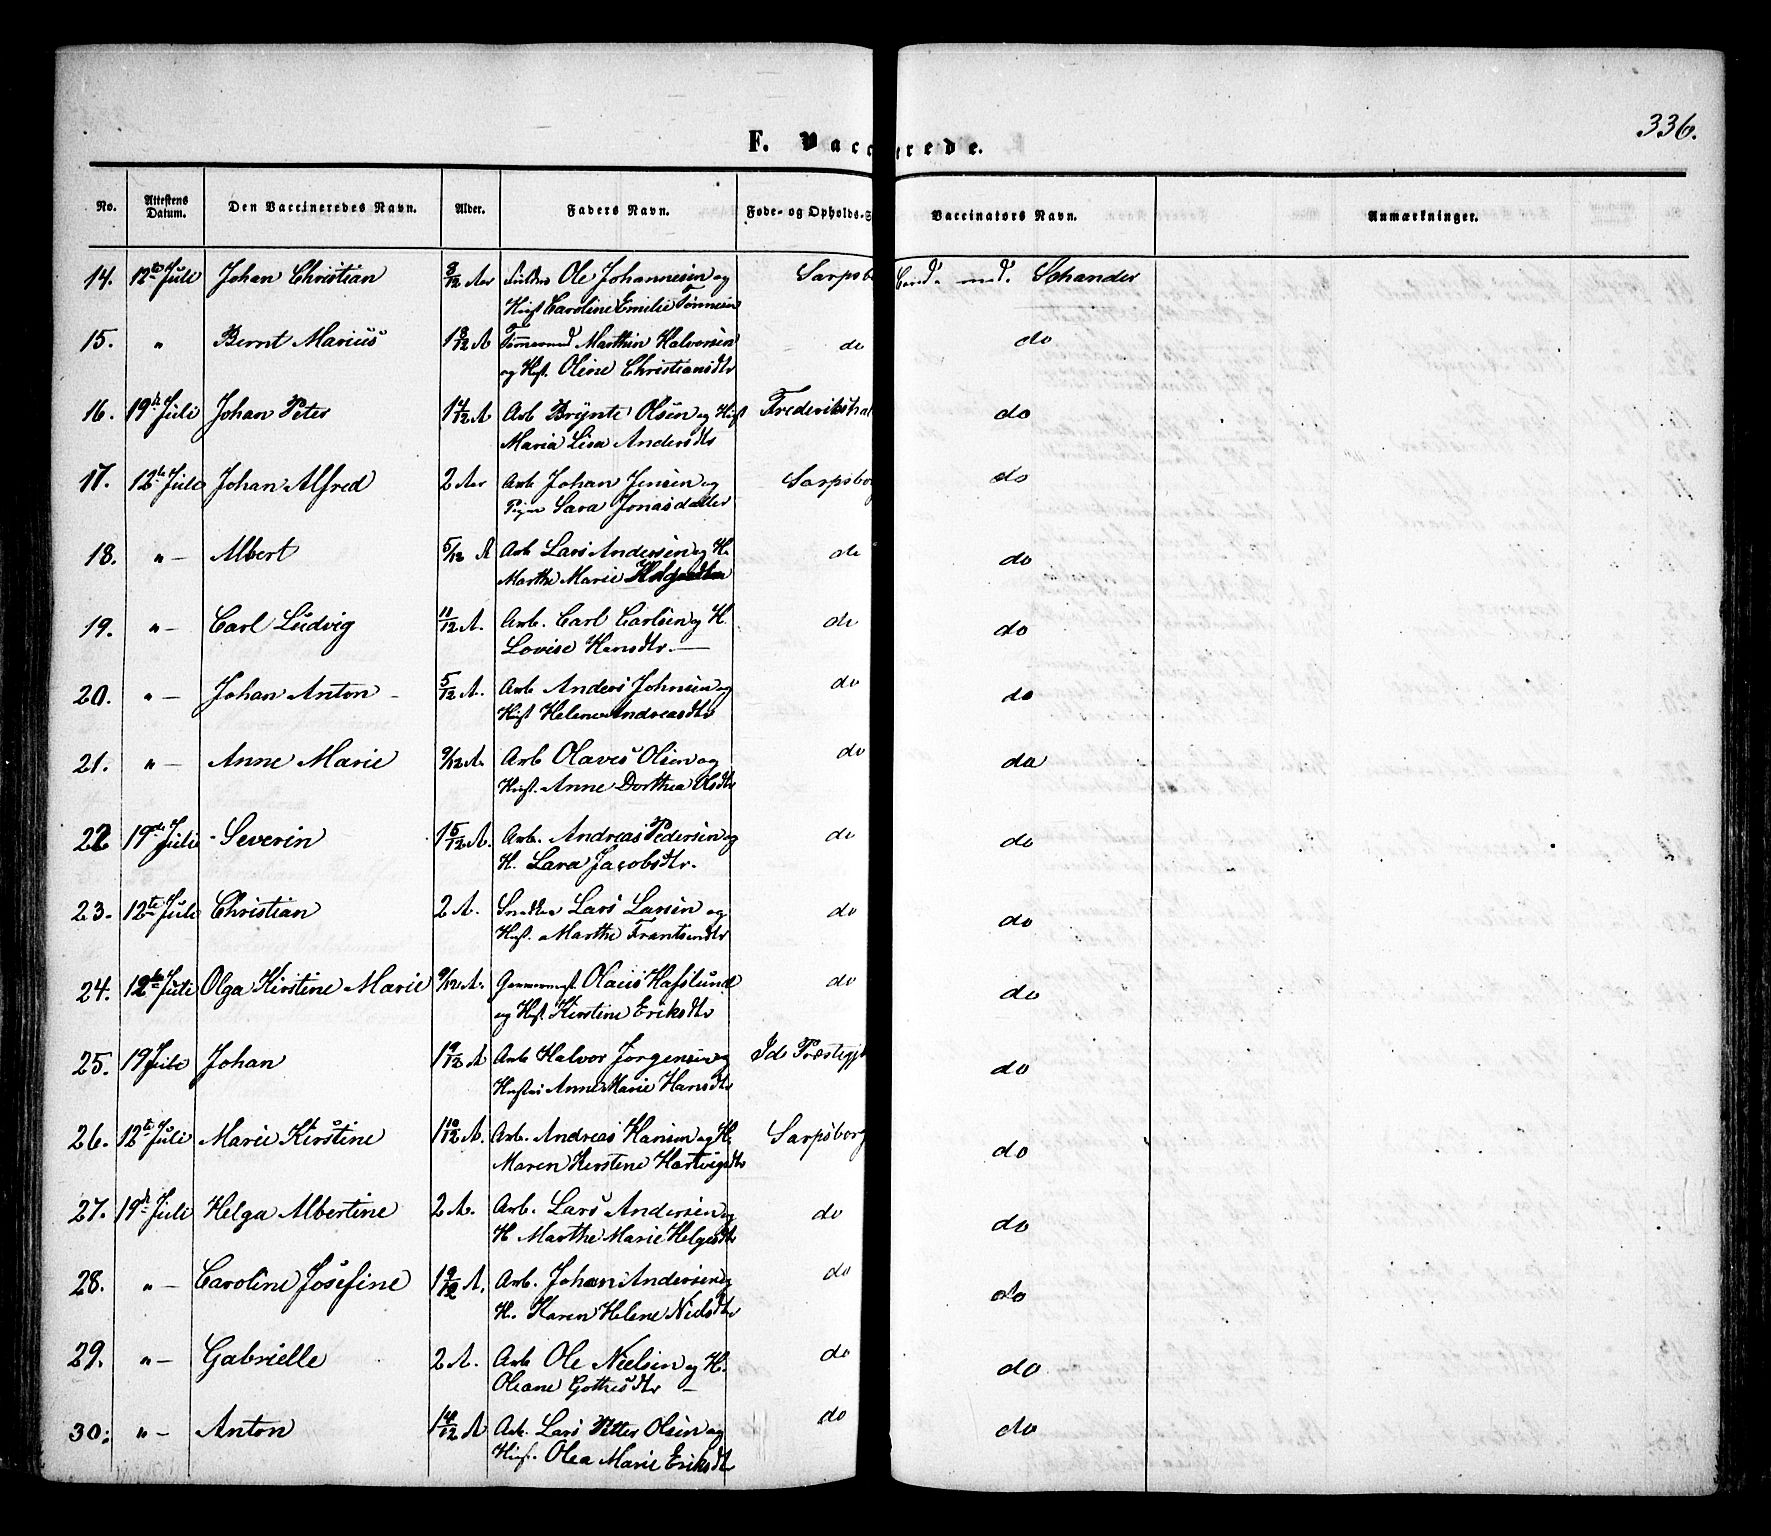 336.
F. Vaccinerede.
No. Attestens Datum. Den Vaccineredes Navn. Alder. Faders Navn. Føde- og Opholds-S Vaccinators Navn. Anmærkninger.
14. 12te Juli Johan Christian 8/12 Aar Ole Johannesen og Sarpsb Cand. med. Schander
Hust Caroline Emilie Tønnesen
15. " Bernt Marius 1 8/12 A Tømmermd Marthin Halvorsen do do
og Hust. Oline Christiansdtr
16. 19de Juli Johan Peter 1 4/12 A Arb Brynte Olsen og Hust Frederikshal do
Maria Lisa Andersdtr
17. 12te Juli Johan Alfred 2 Aar Arb Johan Jensen og Sarpsborg do
Pigen Sara Jonasdatter
18. " — Albert 5/12 A Arb Lars Andersen og H. do do
Marthe Marie Helgesdtr
19. " — Carl Ludvig 11/12 A. Arb. Carl Carlsen og H. do do
Lovise Hansdtr. —
20. " — Johan Anton — 5/12 A. Arb Anders Johnsen og do do
Hust Helene Andreasdtr
21. " — Anne Marie 9/12 A. Arb Olaves Olsen og do do
Hust. Anne Dorthea Olsdtr
22 19de Juli Severin 1 5/12 A. Arb. Andreas Pedersen og do do
H. Lara Jacobsdtr.
23. 12te Juli Christian 2 A. Snedker Lars Larsen og do do
Hust. Marthe Frantsendtr
24. 12te Juli Olga Kirstine Marie 9/12 A. Olaus Hafslund do do
og Hust. Kirstine Eriksdtr
25. 19 Juli Johan 1 9/12 A Arb Halvor Jørgensen og Ids Præstegj do
Hustru Anne Marie Hansdtr
26. 12te Juli Marie Kirstine 1 10/12 A. Arb. Andreas Hansen og H. Sarpsborg do
Maren Kirstine Hartvigsdtr
27. 19de Juli Helga Albertine 2 A. Arb. Lars Andersen og do do
H Marthe Marie Helgesdtr
28. " — Caroline Josefine 1 9/12 A. Arb. Johan Andersen og do do
H. Karen Helene Nielsdtr
29. " — Gabrielle 2 A. Arb Ole Nielsen og H. do do
Oleane Gothesdtr —
30. " — Anton 1 4/12 A Arb. Lars Petter Olsen og do do
Hust. Olea Marie Eriksdtr